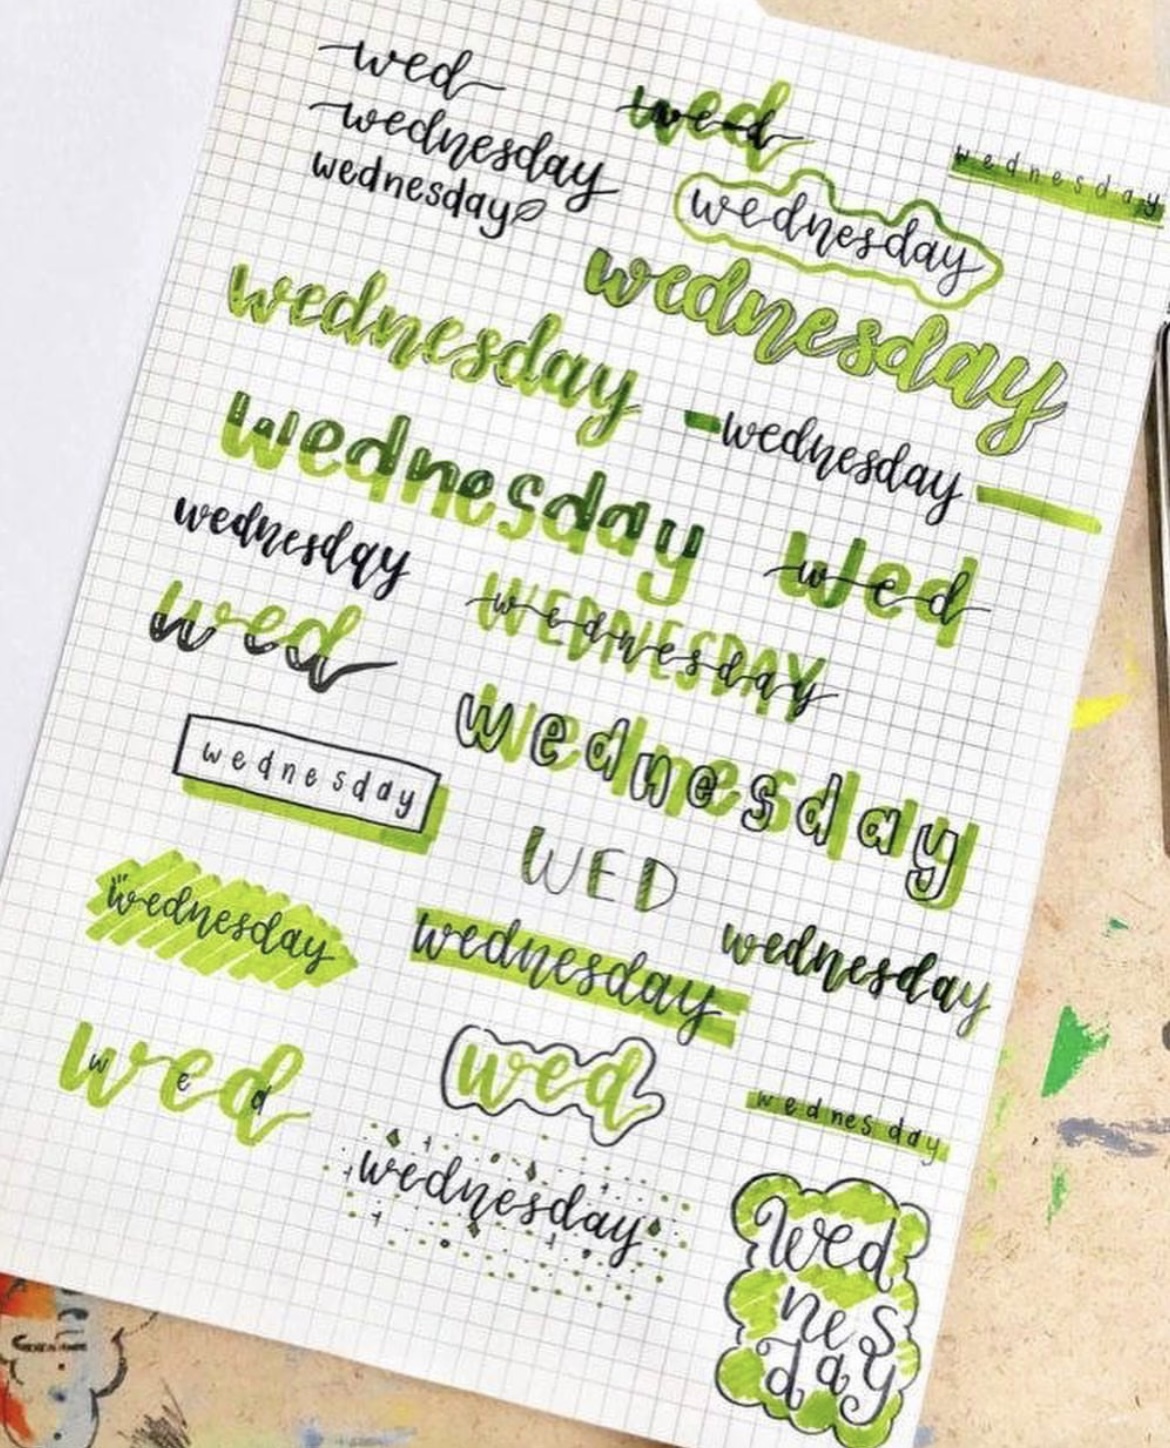 wed
wednesday
wednesday
wed
wednesday
wednesday
wednesday
wednesday
wednesday
wednesday
wednesday
wed
wed
WEDNESDAY
wednesday
wed
wednesday
wednesday
WED
wednesday
wednesday
wednesday
wed
w e d
wed
wednesday
wednesday
wed
nes
day